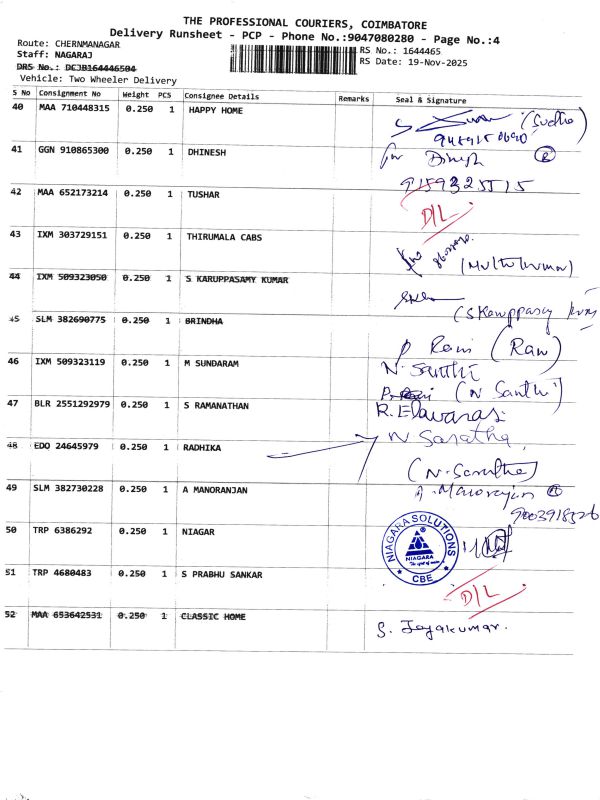 THE PROFESSIONAL COURIERS, COIMBATORE
Delivery Runsheet - PCP - Phone No.:9047080280 - Page No.:4
Route: CHERNMANAGAR
Staff: NAGARAJ
DRS No.: DCJB164446504
Vehicle: Two Wheeler Delivery
RS No.: 1644465
RS Date: 19-Nov-2025
S No Consignment No Weight PCS Consignee Details Remarks Seal & Signature
40 MAA 710448315 0.250 1 HAPPY HOME
(Sudha)
41 GGN 910865300 0.250 1 DHINESH
Dinesh
9159325515
42 MAA 652173214 0.250 1 TUSHAR
D/L
43 IXM 303729151 0.250 1 THIRUMALA CABS
(Muthukumar)
44 IXM 509323050 0.250 1 S KARUPPASAMY KUMAR
45 SLM 382690775 0.250 1 BRINDHA
P Rani (Rani)
46 IXM 509323119 0.250 1 M SUNDARAM
N. Santhi
(N Santhi)
47 BLR 2551292979 0.250 1 S RAMANATHAN
R. Elavarasi
48 EDO 24645979 0.250 1 RADHIKA
N Saratha
(N. Saratha)
49 SLM 382730228 0.250 1 A MANORANJAN
A. Manoranjan
9003918326
50 TRP 6386292 0.250 1 NIAGAR
NIAGARA SOLUTIONS
NIAGARA
CBE
51 TRP 4680483 0.250 1 S PRABHU SANKAR
D/L
52 MAA 653642531 0.250 1 CLASSIC HOME
S. Jayakumar.